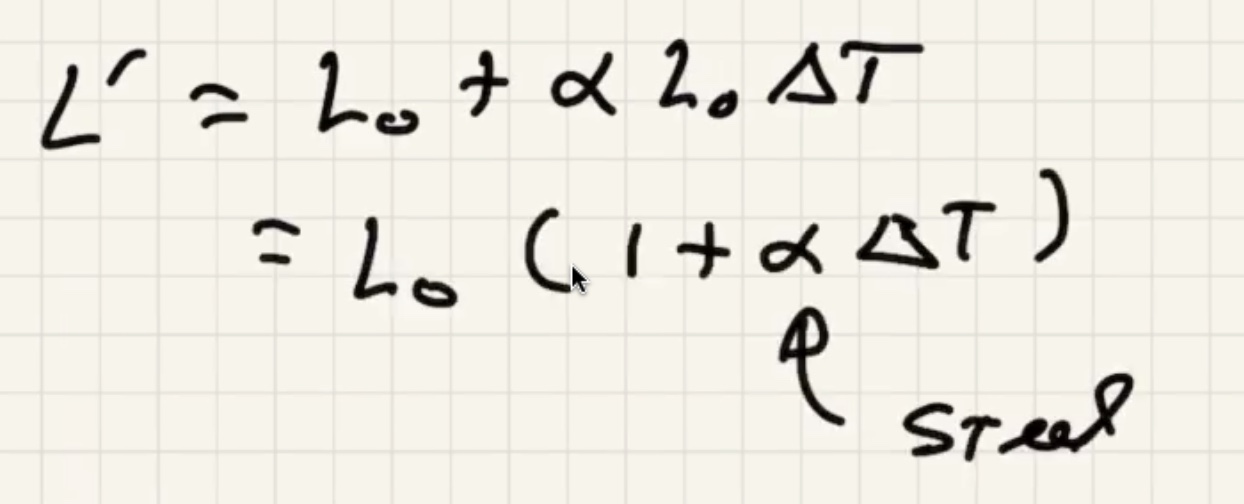 L' = L₀ + α L₀ ΔT
= L₀ (1 + α ΔT)
Steel